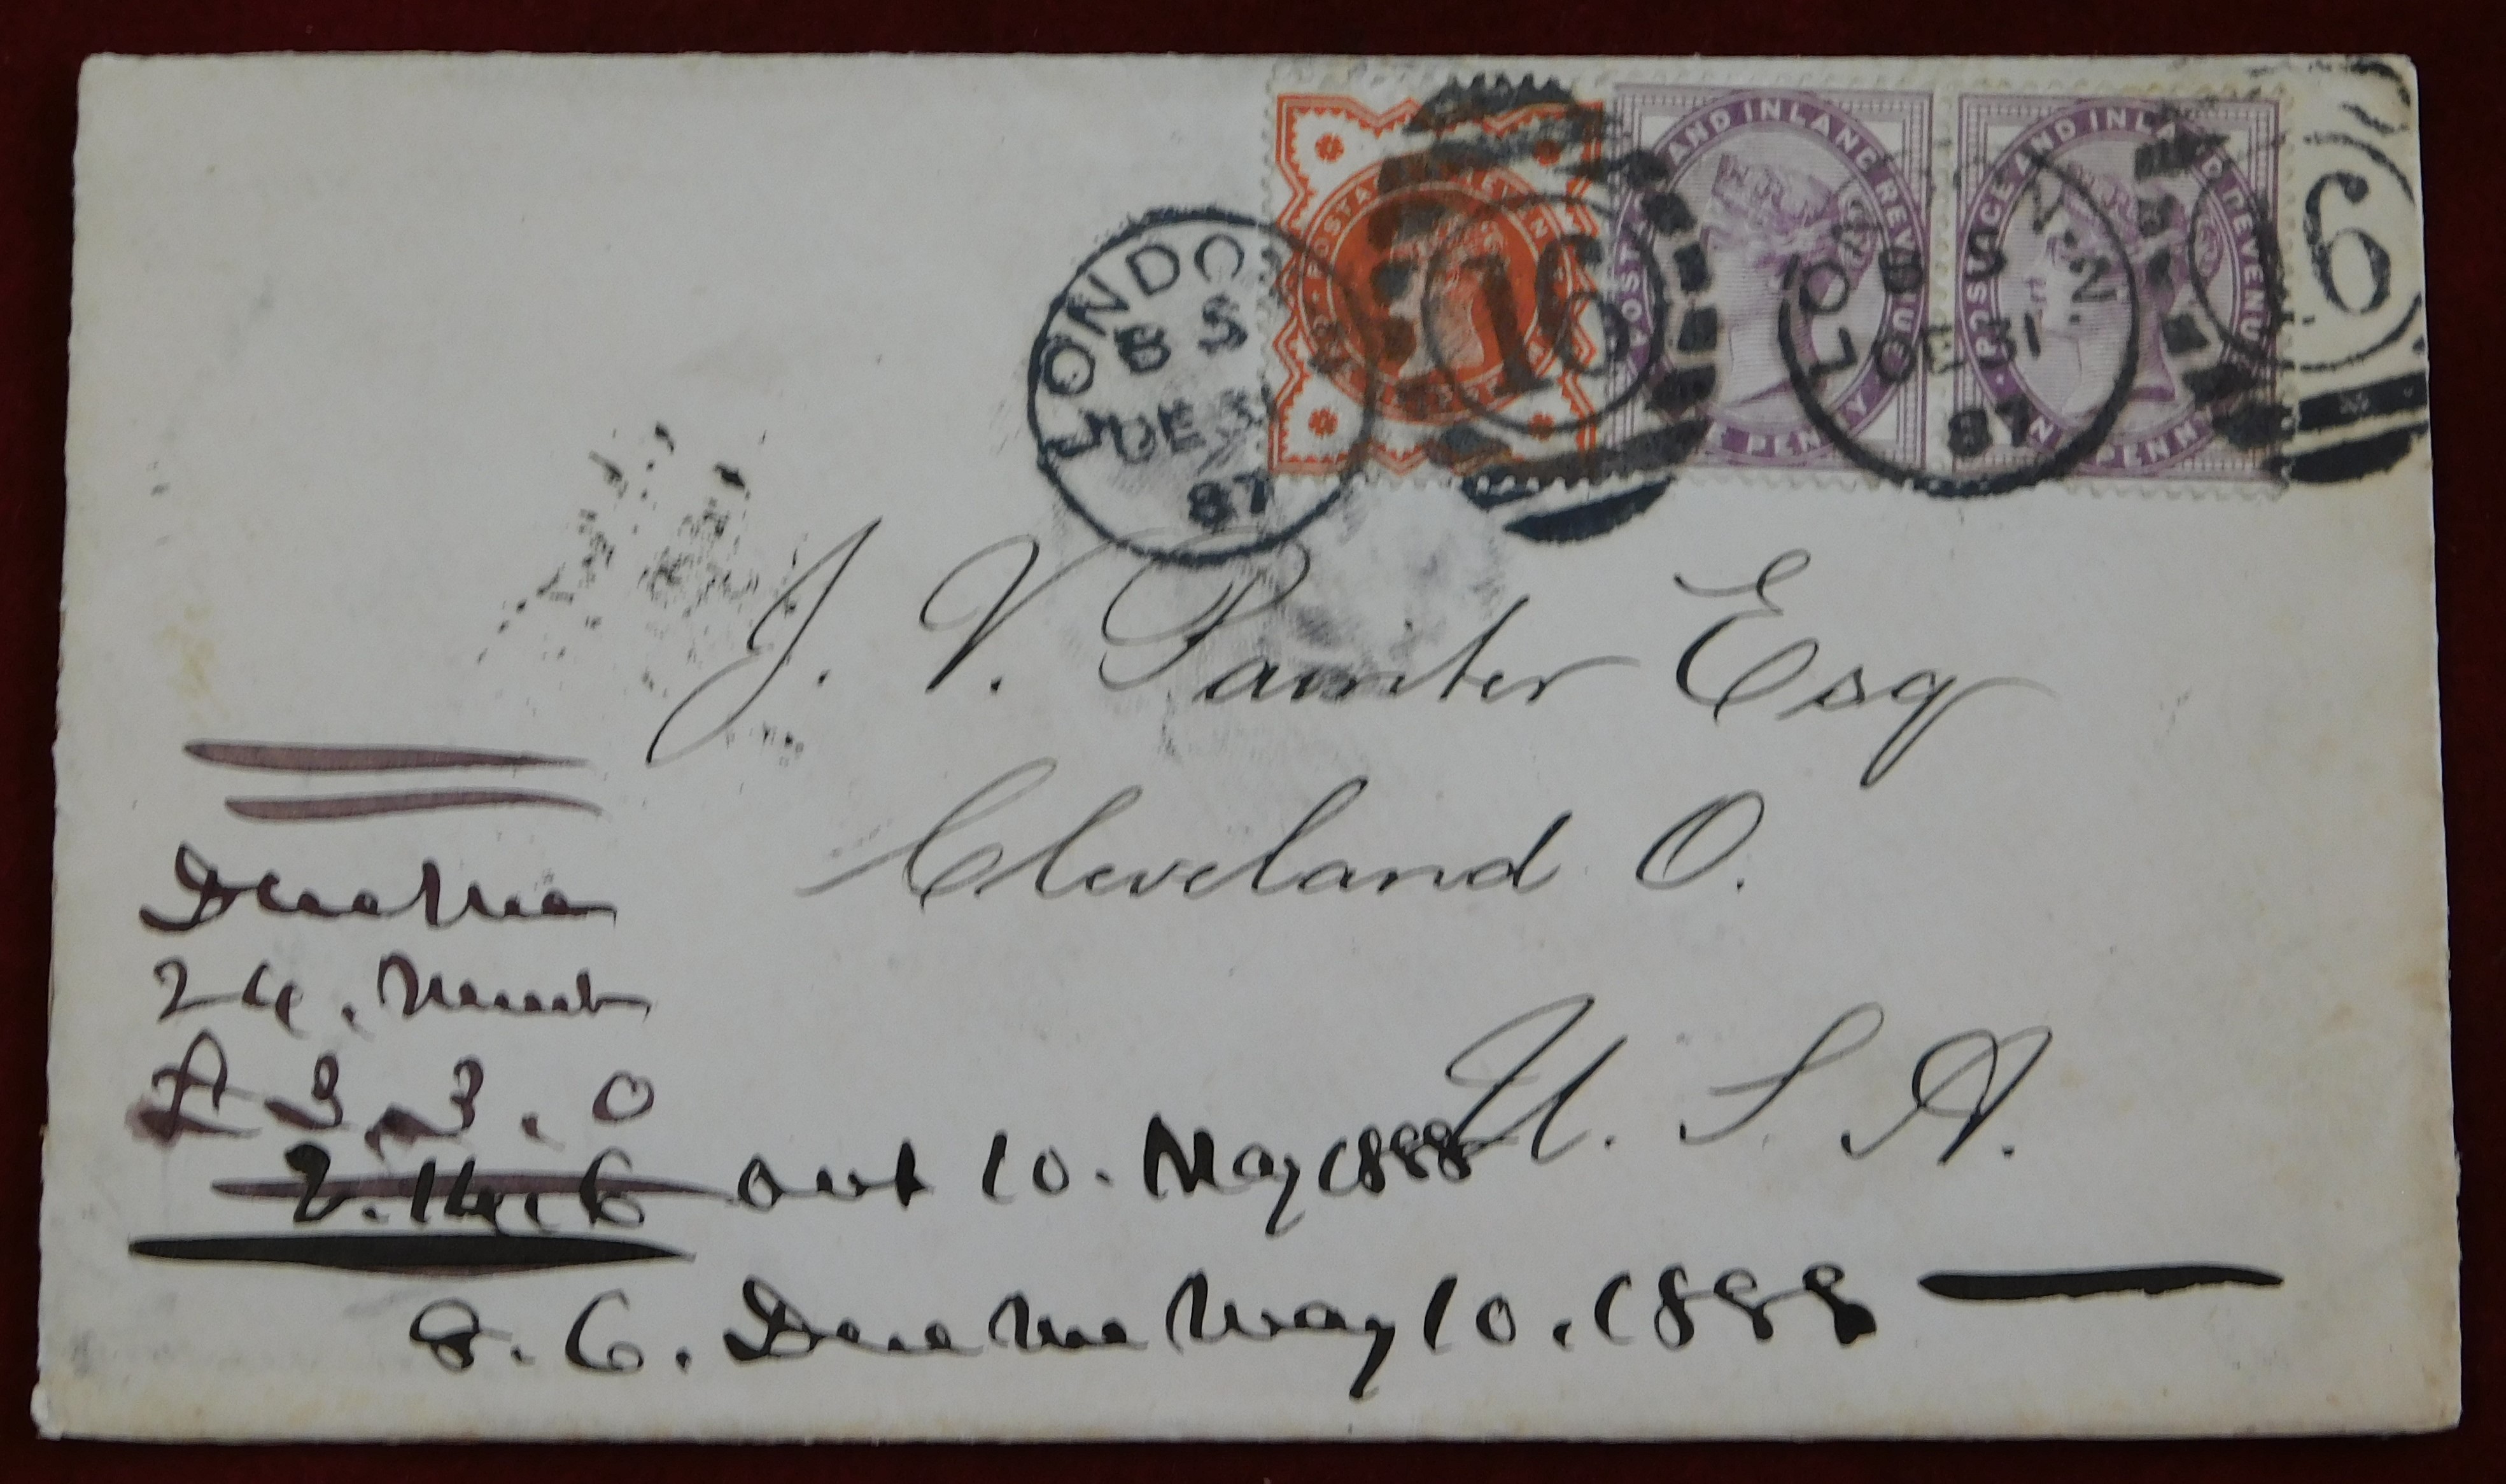 LONDON
8 S
DE 31
87
16
POSTAGE AND INLAND REVENUE
ONE PENNY
LON N
87
POSTAGE AND INLAND REVENUE
ONE PENNY
6
J. V. Painter Esq
Cleveland O.
U. S. A.
Due me
24.
£ 3.3.0
2.14.6 out 10. May 1888
8.6. Due me May 10. 1888